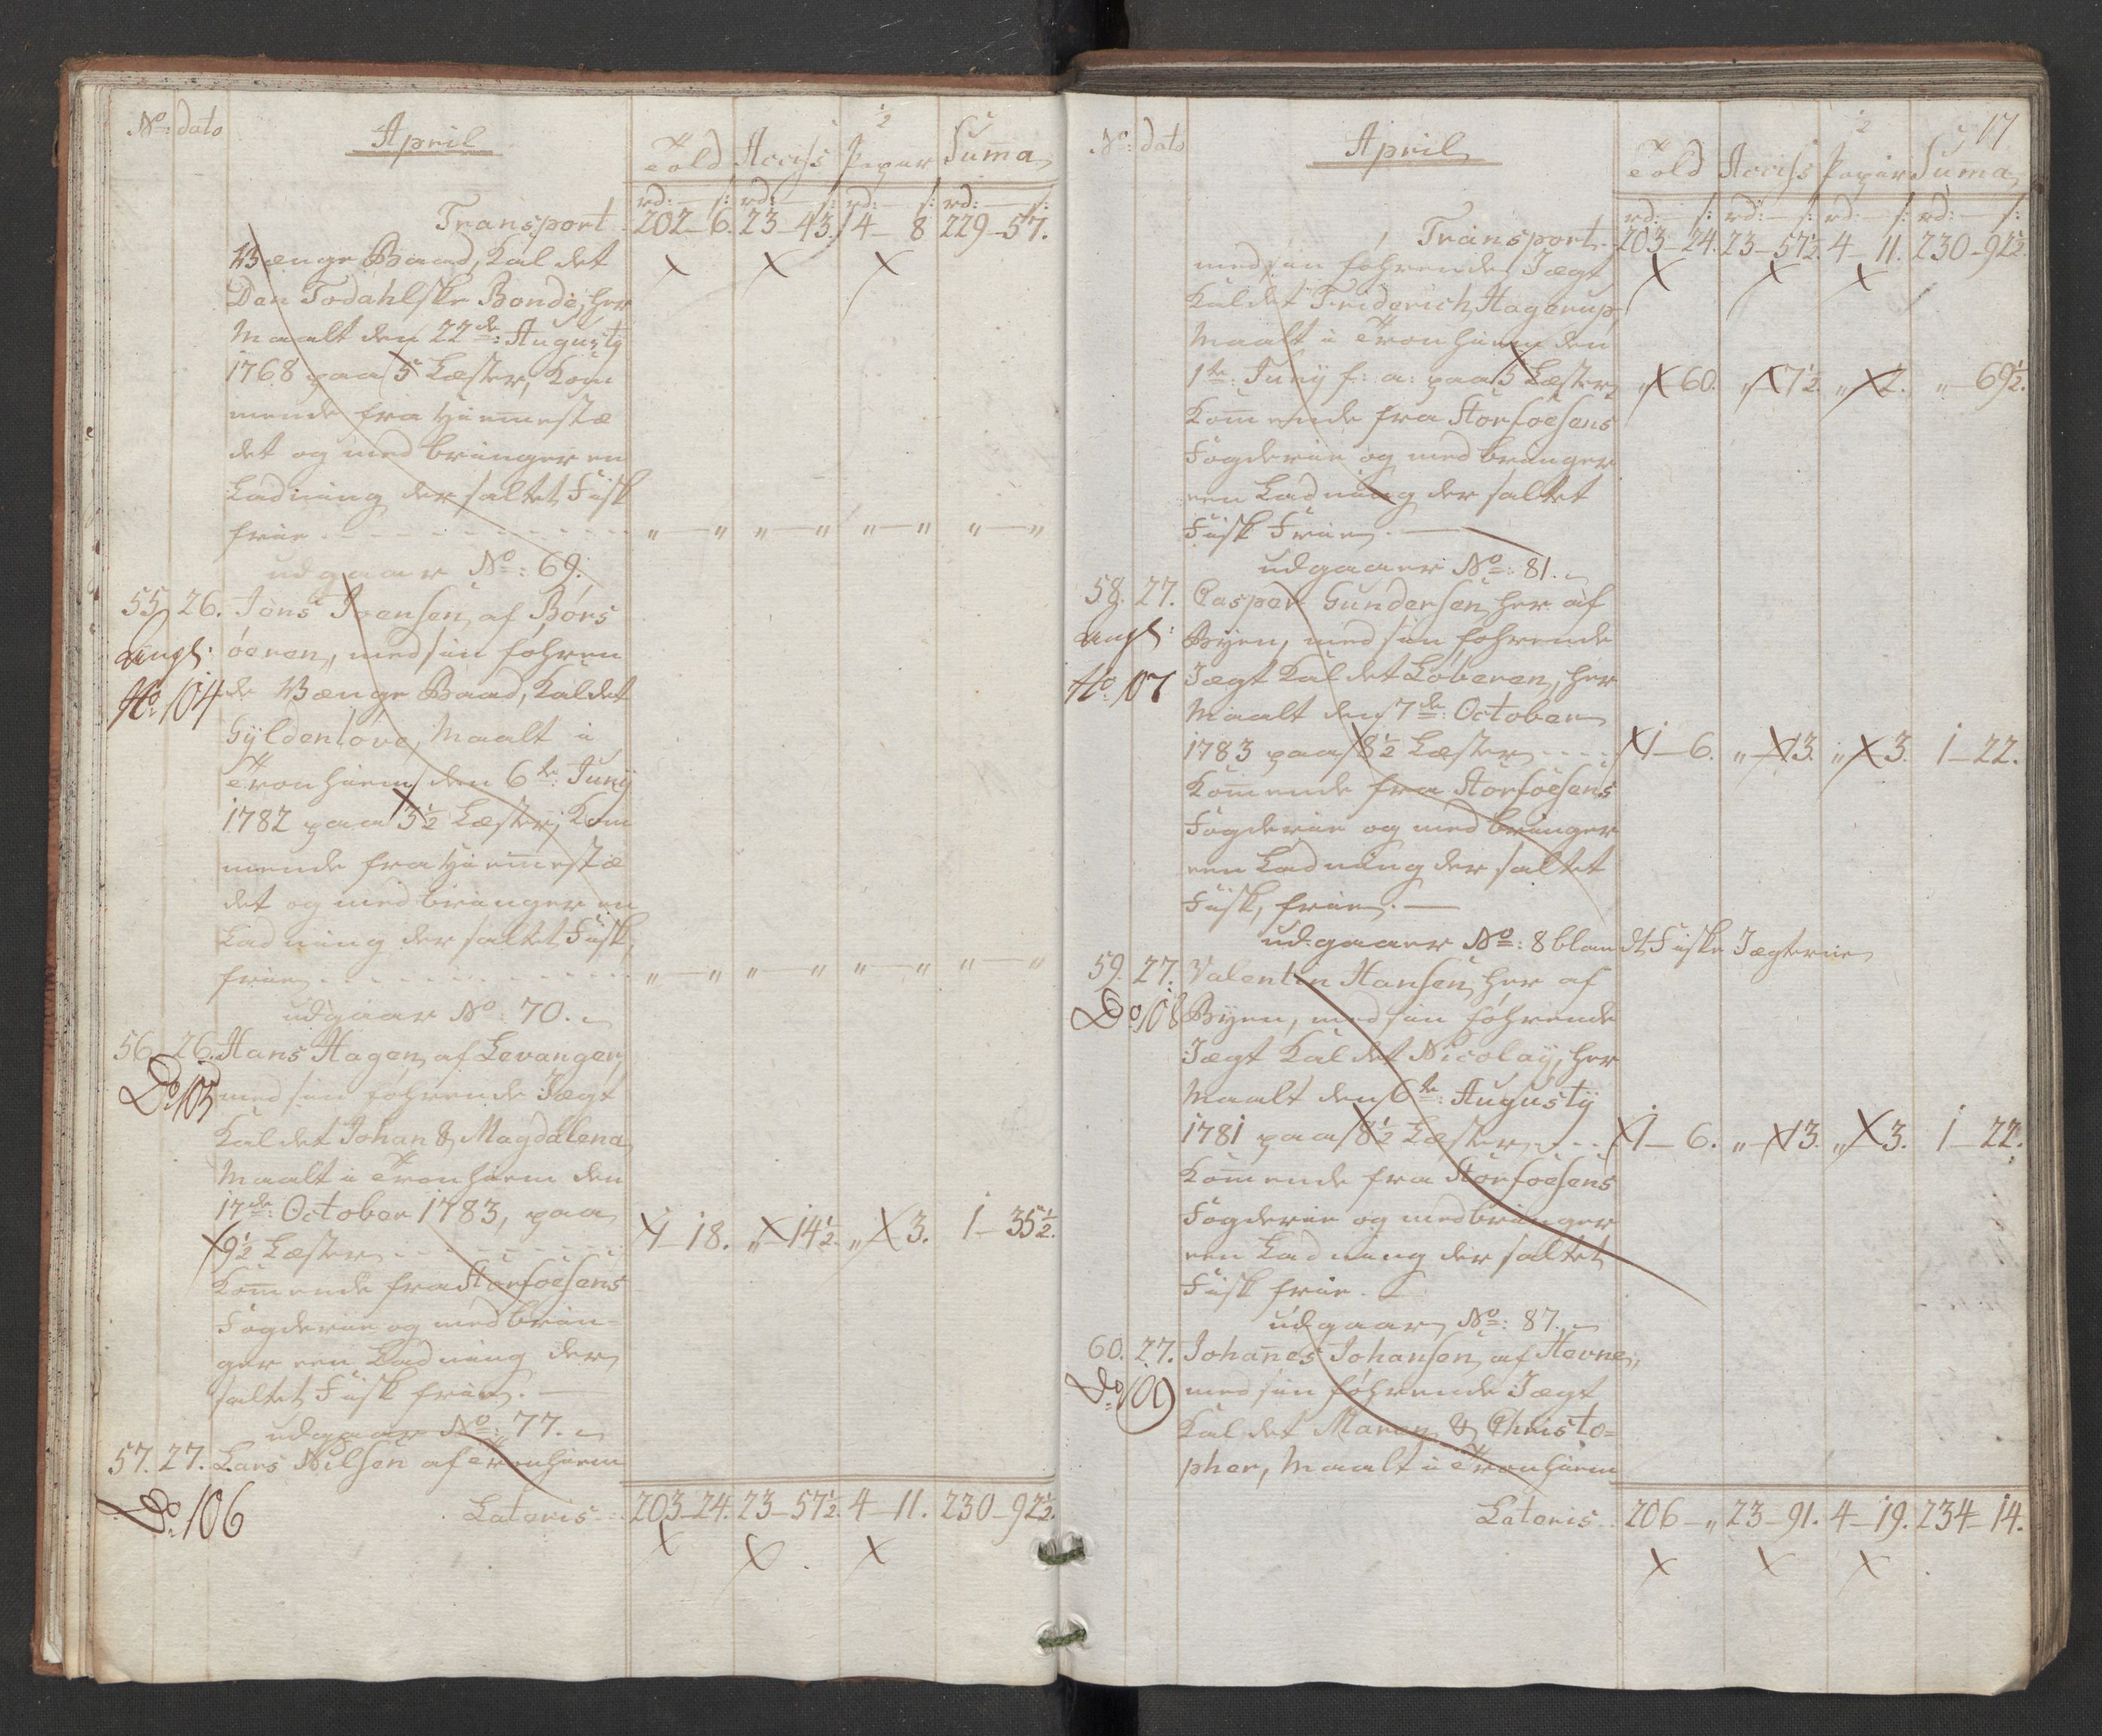 No: dato April Told Acciss Papir Suma
½
rd: s: rd: s: rd: s: rd: s:
Transport 202–6. 23–43. 4– 8 229–57.
Vænge Baad, Kaldet
Den Todahlske Bonde, her
Maalt den 22de: Augusty
1768 paa 5 Læster, Kom
mende fra Hiemestæ
det og med bringer en
Ladning der saltet Fisk
frie . . . . „–„ „–„ „–„ „–„
udgaar No: 69.
55. 26. Jens Ivensen af Børs
angl: øeren, med sin føhren
No: 104 de Vænge Baad, Kaldet
Gyldenløve, Maalt i
Tronhiem den 6te: Juny
1782 paa 3½ Læster, Kom
mende fra Hiemestæ
det og med bringer en
Ladning der saltet Fisk,
frie . . . . „–„ „–„ „–„ „–„
udgaar No: 70.
56. 26. Hans Hagen af Levanger,
Do 105 med sin føhrende Jægt
Kaldet Johan & Magdalena
Maalt i Tronhiem den
17de: October 1783, paa
9½ Læster . . . . 1–18. „–14½. „–3. 1–35½.
Kommende fra Storfoesens
Fogderie og med brin-
ger een Ladning der
saltet Fisk frie. —
udgaar No: 77.
57. 27. Lars Nilsen af Tronhiem
Do: 106 Lateris . . 203–24. 23–57½. 4–11. 230–92½.
17
No: dato April Told Acciss Papir Suma
½
rd: s: rd: s: rd: s: rd: s:
Transport 203–24. 23–57½. 4–11. 230–92½.
med sin føhrende Jægt
Kaldet Friderich Hagerup,
Maalt i Tronhiem den
1te: Juny f: a: paa 5 Læster, „–60. „–7½. „–2. „–69½.
Kommende fra Storfoesens
Fogderie og med bringer
een Ladning der saltet
Fisk Frie. —
udgaaer No: 81.
58. 27. Casper Gundersen her af
angl: Byen, med sin føhrende
No: 107 Jægt Kaldet Løberen, her
Maalt den 7de: October
1783 paa 8½ Læster . . . . 1–6. „–13. „–3. 1–22.
Kommende fra Storfoesens
Fogderie og med bringer
een Ladning der saltet
Fisk, frie. —
udgaaer No: 8 blandt Fiske Jægterne
59. 27. Valentin Hansen her af
Do 108 Byen, med sin føhrende
Jægt Kaldet Nicolay, her
Maalt den 6te: Augusty
1781 paa 8½ Læster . . . 1–6. „–13. „–3. 1–22.
Kommende fra Storfoesens
Fogderie og medbringer
een Ladning der saltet
Fisk frie.
udgaar No: 87.
60. 27. Johanes Johansen af Hevne,
Do 109 med sin føhrende Jægt
Kaldet Maren & Christo=
pher, Maalt i Tronhiem
Lateris . . 206–„ 23–91. 4–19. 234–14.